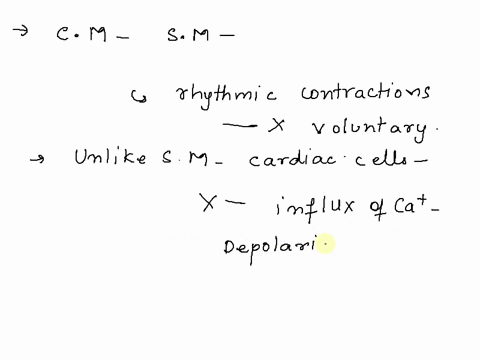 → C.M – S.M –
↳ rhythmic contractions
— X voluntary.
→ Unlike S.M – cardiac cells –
X – influx of Ca⁺ –
Depolari